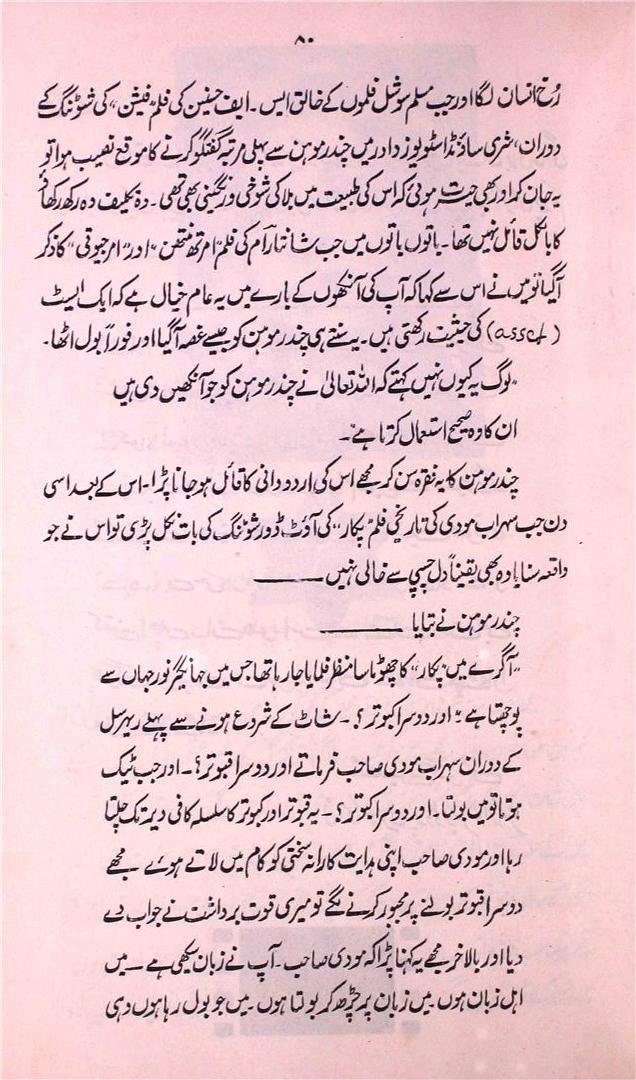 ۸۰
رُخ انسان لگا اور جب مسلم سوشل فلموں کے خالق ایس۔ ایف حسنین کی فلم "فیشن" کی شوٹنگ کے
دوران، شری ساؤنڈ اسٹوڈیوز دادر میں چندر موہن سے پہلی مرتبہ گفتگو کرنے کا موقع نصیب ہوا تو
یہ جان کر اور بھی حیرت ہوئی کہ اس کی طبیعت میں بلا کی شوخی و رنگینی بھی تھی۔ وہ تکلیف دہ رکھ رکھاؤ
کا بالکل قائل نہیں تھا۔ باتوں باتوں میں جب شانتا رام کی فلم "امرتھ منتھن" اور "امر جیوتی" کا ذکر
آگیا تو میں نے اس سے کہا کہ آپ کی آنکھوں کے بارے میں یہ عام خیال ہے کہ ایک ایسٹ
(asset) کی حیثیت رکھتی ہیں۔ یہ سنتے ہی چندر موہن کو جیسے غصہ آگیا اور فوراً بول اٹھا۔
"لوگ یہ کیوں نہیں کہتے کہ اللہ تعالیٰ نے چندر موہن کو جو آنکھیں دی ہیں
ان کا وہ صحیح استعمال کرتا ہے"۔
چندر موہن کا یہ فقرہ سن کر مجھے اس کی اردو دانی کا قائل ہو جانا پڑا۔ اس کے بعد اسی
دن جب سہراب مودی کی تاریخی فلم "پکار" کی آؤٹ ڈور شوٹنگ کی بات نکل پڑی تو اس نے جو
واقعہ سنایا وہ بھی یقیناً دل چسپی سے خالی نہیں ———
چندر موہن نے بتایا ———
"آگرے میں "پکار" کا چھوٹا سا منظر فلمایا جا رہا تھا جس میں جہانگیر نور جہاں سے
پوچھتا ہے؛ اور دوسرا کبوتر؟۔ شاٹ کے شروع ہونے سے پہلے ریہرسل
کے دوران سہراب مودی صاحب فرماتے اور دوسرا قبوتر؟۔ اور جب ٹیک
ہوتا تو میں بولتا۔ اور دوسرا کبوتر؟۔ یہ قبوتر اور کبوتر کا سلسلہ کافی دیر تک چلتا
رہا اور مودی صاحب اپنی ہدایت کارانہ سختی کو کام میں لاتے ہوئے مجھے
دوسرا قبوتر بولنے پر مجبور کرنے لگے تو میری قوت برداشت نے جواب دے
دیا اور بالآخر مجھے یہ کہنا پڑا کہ مودی صاحب۔ آپ نے زبان سیکھی ہے۔ میں
اہل زبان ہوں۔ میں زبان پر چڑھ کر بولتا ہوں۔ میں جو بول رہا ہوں وہی